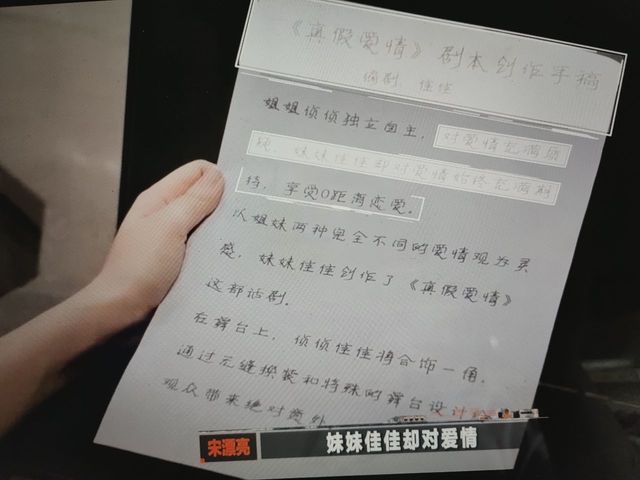 《真假爱情》剧本创作手稿
编剧：佳佳
姐姐侦侦独立自主，对爱情充满质
疑，妹妹佳佳却对爱情始终充满期
待，享受0距离恋爱。
以姐妹两种完全不同的爱情观为灵
感，妹妹佳佳创作了《真假爱情》
这部话剧。
在舞台上，侦侦佳佳将合饰一角，
通过无缝换装和特殊的舞台设计给
观众带来绝对意外
宋漂亮
妹妹佳佳却对爱情